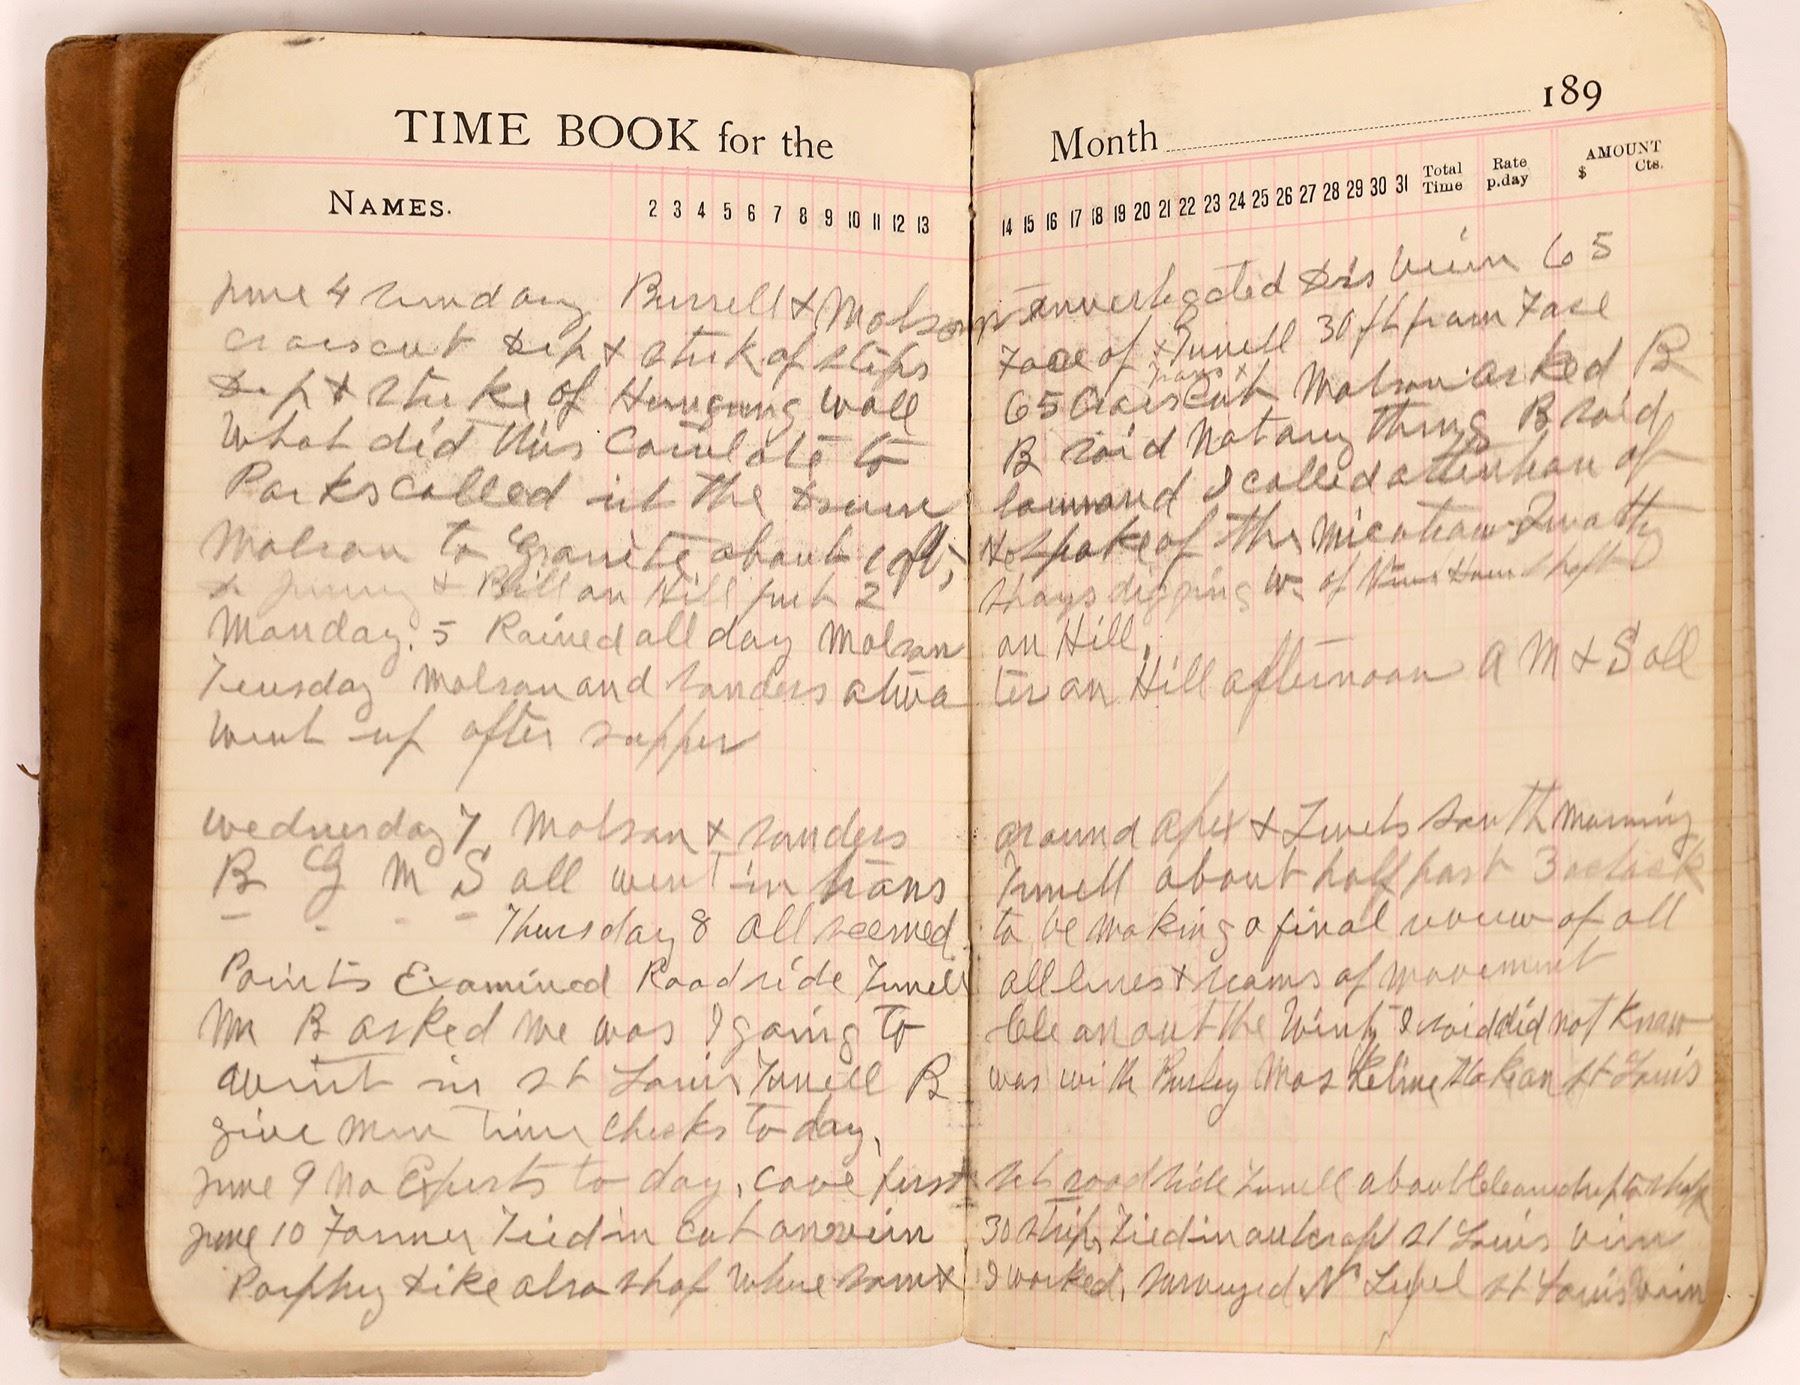 TIME BOOK for the
NAMES. 2 3 4 5 6 7 8 9 10 11 12 13
June 4 sunday Burrell & Molson
Croiscut Dip & strik of steps
Dip & strike of Hanging wall
What did this to
Parks called it the same
Molson to Granite about 1 ft,
& Bill on Hill 2
Monday. 5 Rained all day Molson
Teusday Molson and sanders
went up after supper
wednesday 7 Molson & sanders
B G M S all went in trans
Thursday 8 all seemed
Points Examined Roadside Tunell
Mr B asked me was I going to
went in st Louis Tunell B
give men Time checks to day,
June 9 No Experts to day, cave first
June 10 Farmer Tied in cut on vein
Porphry dike also shaf where
Month 189
14 15 16 17 18 19 20 21 22 23 24 25 26 27 28 29 30 31 Total Time Rate p.day AMOUNT $ Cts.
65
Face of Tunell 30 ft from Face
trans
65 Croiscut Molson asked B
B said Not any thing B said
I called attention of
He spoke of the
digging W. of shaft
on Hill,
ter on Hill afternoon A M & S all
around apex & south morning
Tunell about half past 3 oclock
to be making a final of all
all lines & seams of movement
Clean out the I said did not know
was with st Louis
roadside Tunell about
30 Tied in st Louis vein
I worked, surveyed N st Louis vein